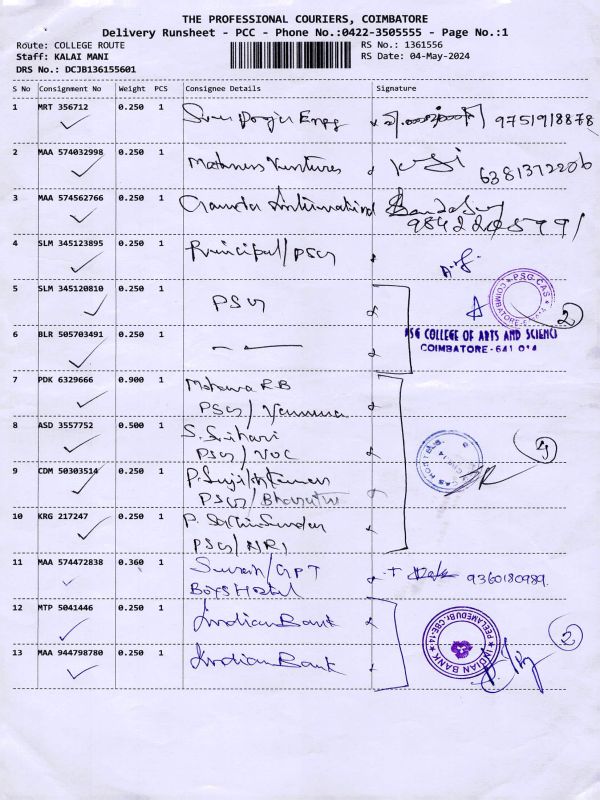 THE PROFESSIONAL COURIERS, COIMBATORE
Delivery Runsheet - PCC - Phone No.:0422-3505555 - Page No.:1
Route: COLLEGE ROUTE
RS No.: 1361556
Staff: KALAI MANI
RS Date: 04-May-2024
DRS No.: DCJB136155601
S No Consignment No Weight PCS Consignee Details Signature
1 MRT 356712 0.250 1 9751918878
2 MAA 574032998 0.250 1 Ventures 6381372206
3 MAA 574562766 0.250 1 International
4 SLM 345123895 0.250 1 Principal/PSG
5 SLM 345120810 0.250 1 PSG
PSG CAS
COIMBATORE
2
PSG COLLEGE OF ARTS AND SCIENCE
COIMBATORE-641 014
6 BLR 505703491 0.250 1
7 PDK 6329666 0.900 1 R.B
PSG/
8 ASD 3557752 0.500 1 S. Srihari
PSG/VOC
4
9 CDM 50303514 0.250 1 P.
PSG/Bharathi
10 KRG 217247 0.250 1 P.
PSG/NRI
11 MAA 574472838 0.360 1 Suresh/GPT 9360180989.
Boys Hostel
12 MTP 5041446 0.250 1 Indian Bank
INDIAN BANK
PEELAMEDU CBE-14
2
13 MAA 944798780 0.250 1 Indian Bank